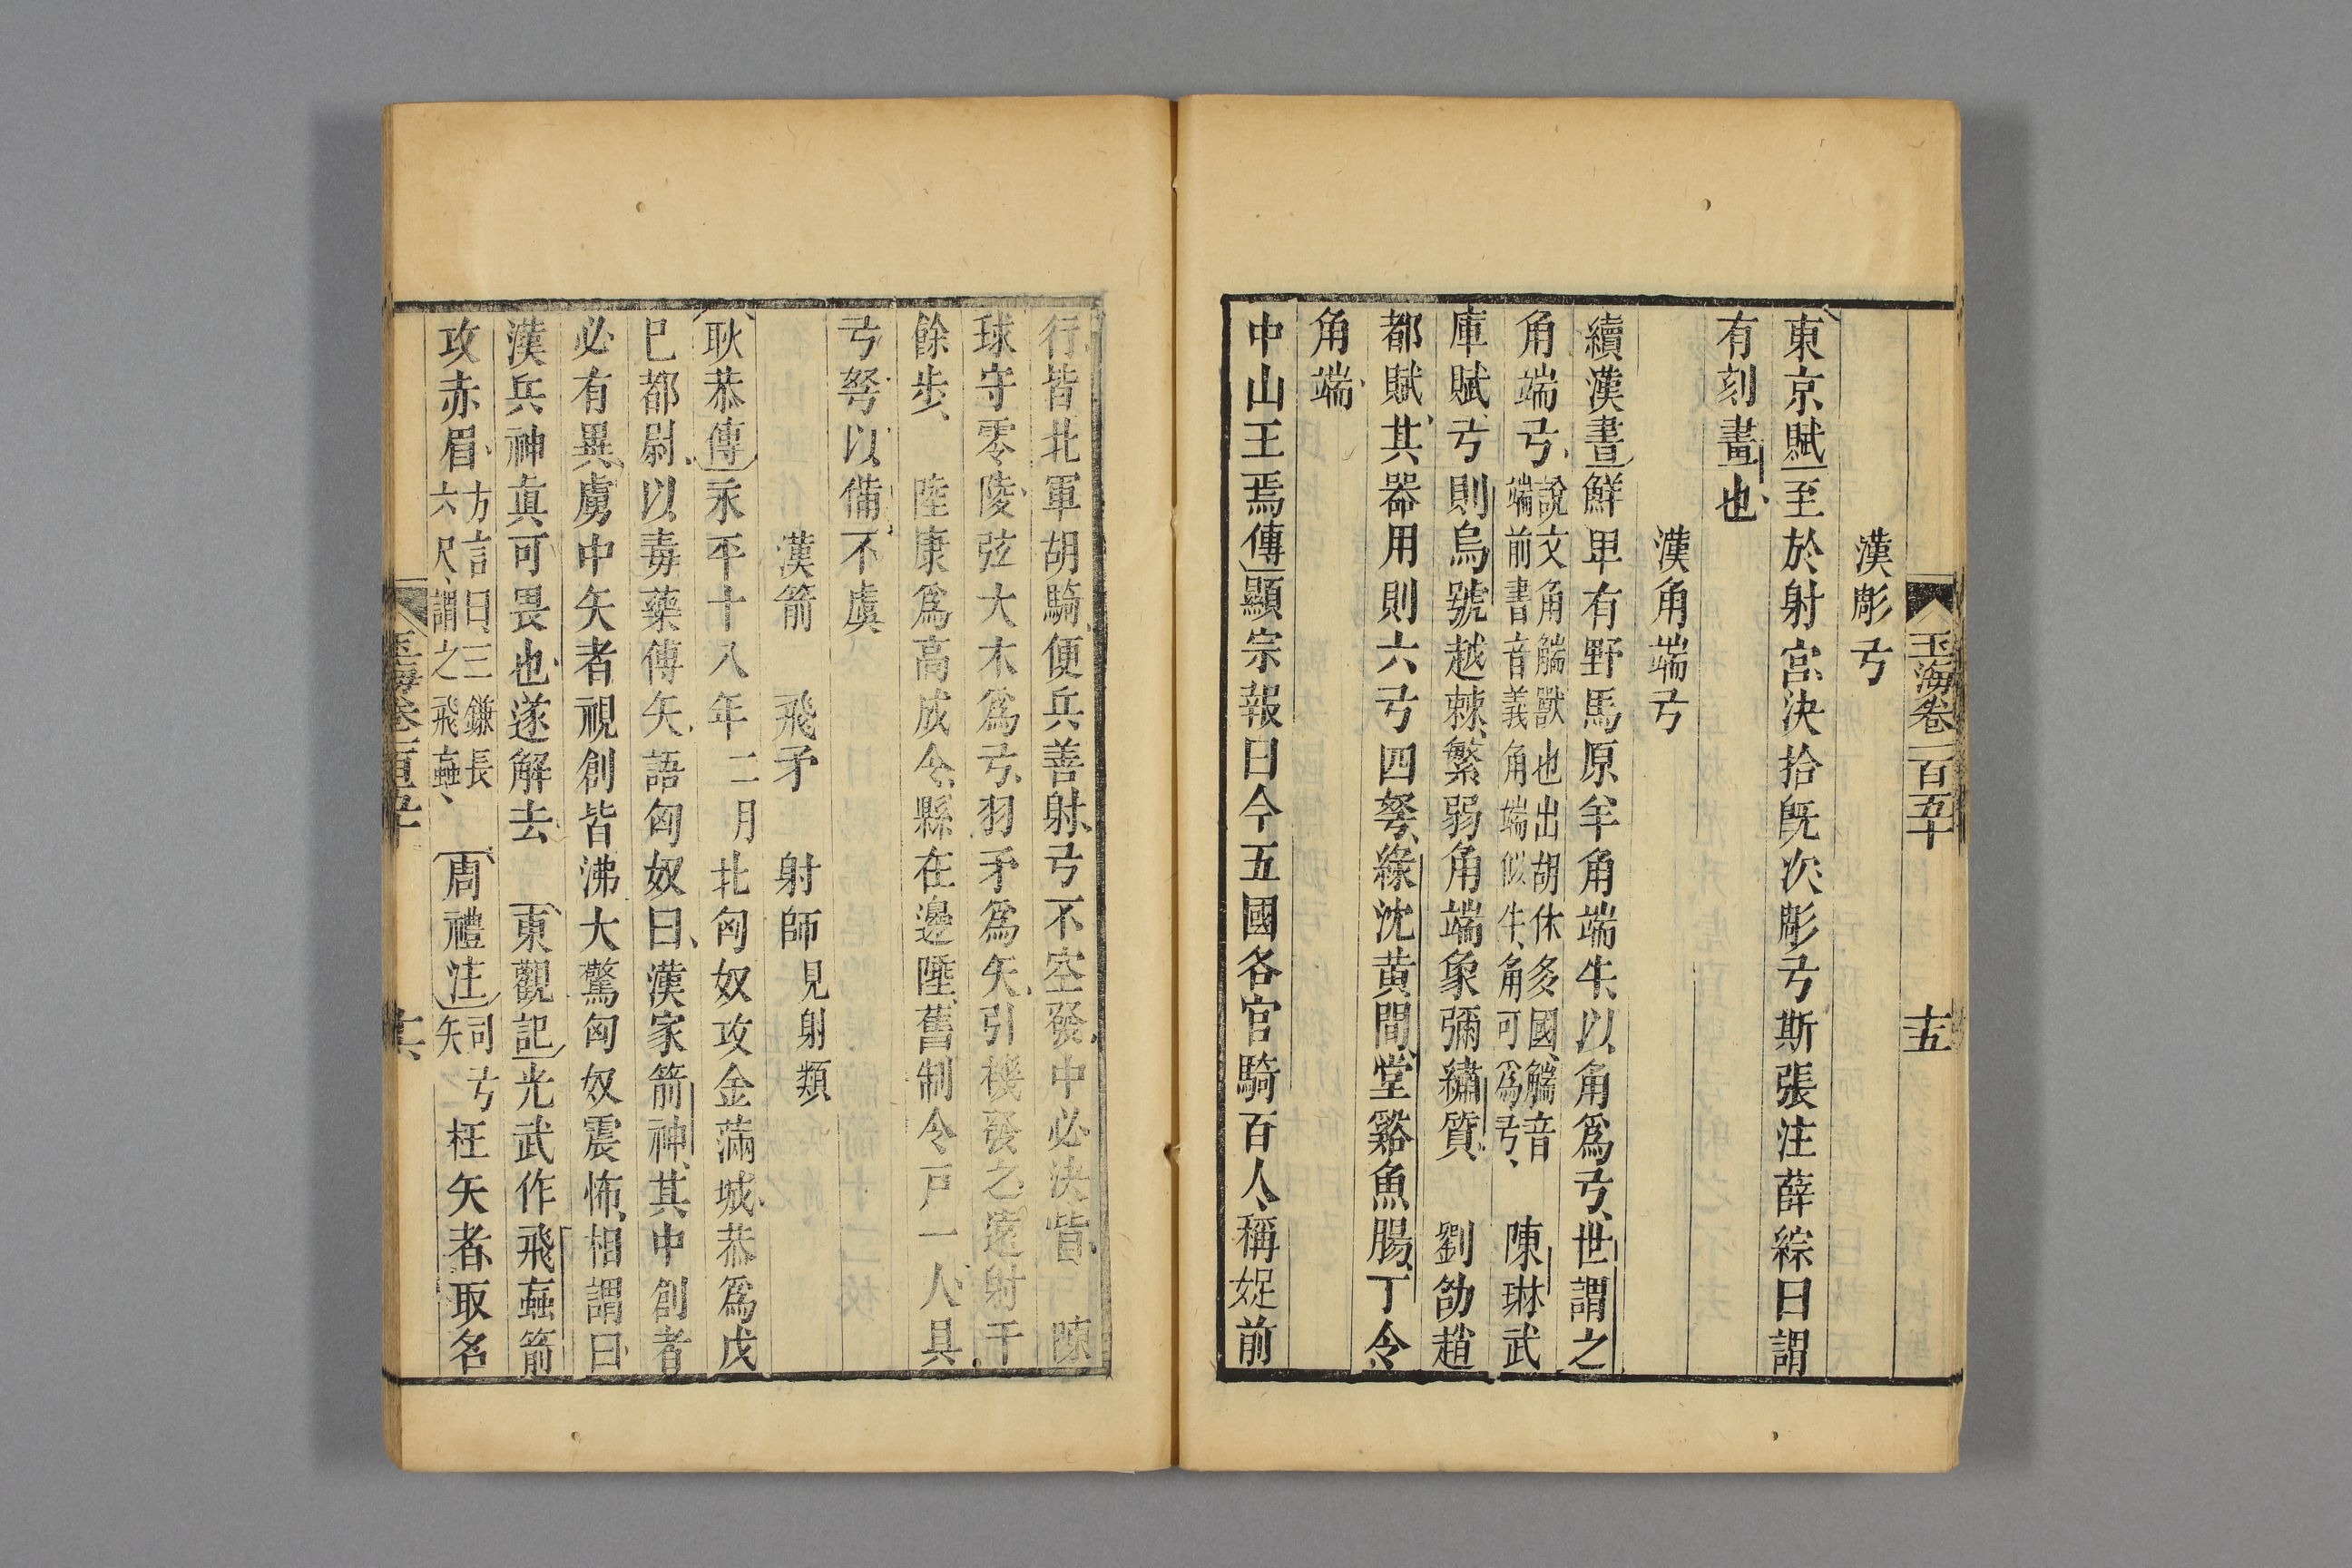 玉海卷一百五十 十五
漢彫弓
東京賦至於射宮決拾旣次彫弓斯張注薛綜曰謂
有刻畫也
漢角端弓
續漢書鮮卑有野馬原羊角端牛以角爲弓世謂之
角端弓說文角觿獸也出胡休多國觿音端前書音義角端似牛角可爲弓 陳琳武
庫賦弓則烏號越棘繁弱角端象彌繡質 劉劭趙
都賦其器用則六弓四弩綠沈黃間堂谿魚腸丁令
角端
中山王焉傳顯宗報曰今五國各官騎百人稱娖前
行皆北軍胡騎便兵善射弓不空發中必決眥 陳
球守零陵弦大木爲弓羽矛爲矢引機發之遠射千
餘步 陸康爲高成令縣在邊陲舊制令戶一人具
弓弩以備不虞
漢箭 飛矛 射師見射類
耿恭傳永平十八年二月北匈奴攻金滿城恭爲戊
巳都尉以毒藥傅矢語匈奴曰漢家箭神其中創者
必有異虜中矢者視創皆沸大驚匈奴震怖相謂曰
漢兵神眞可畏也遂解去 東觀記光武作飛蝱箭
攻赤眉方言曰三鎌長六尺謂之飛蝱 周禮注司弓矢枉矢者取名
玉海卷一百五十 十六